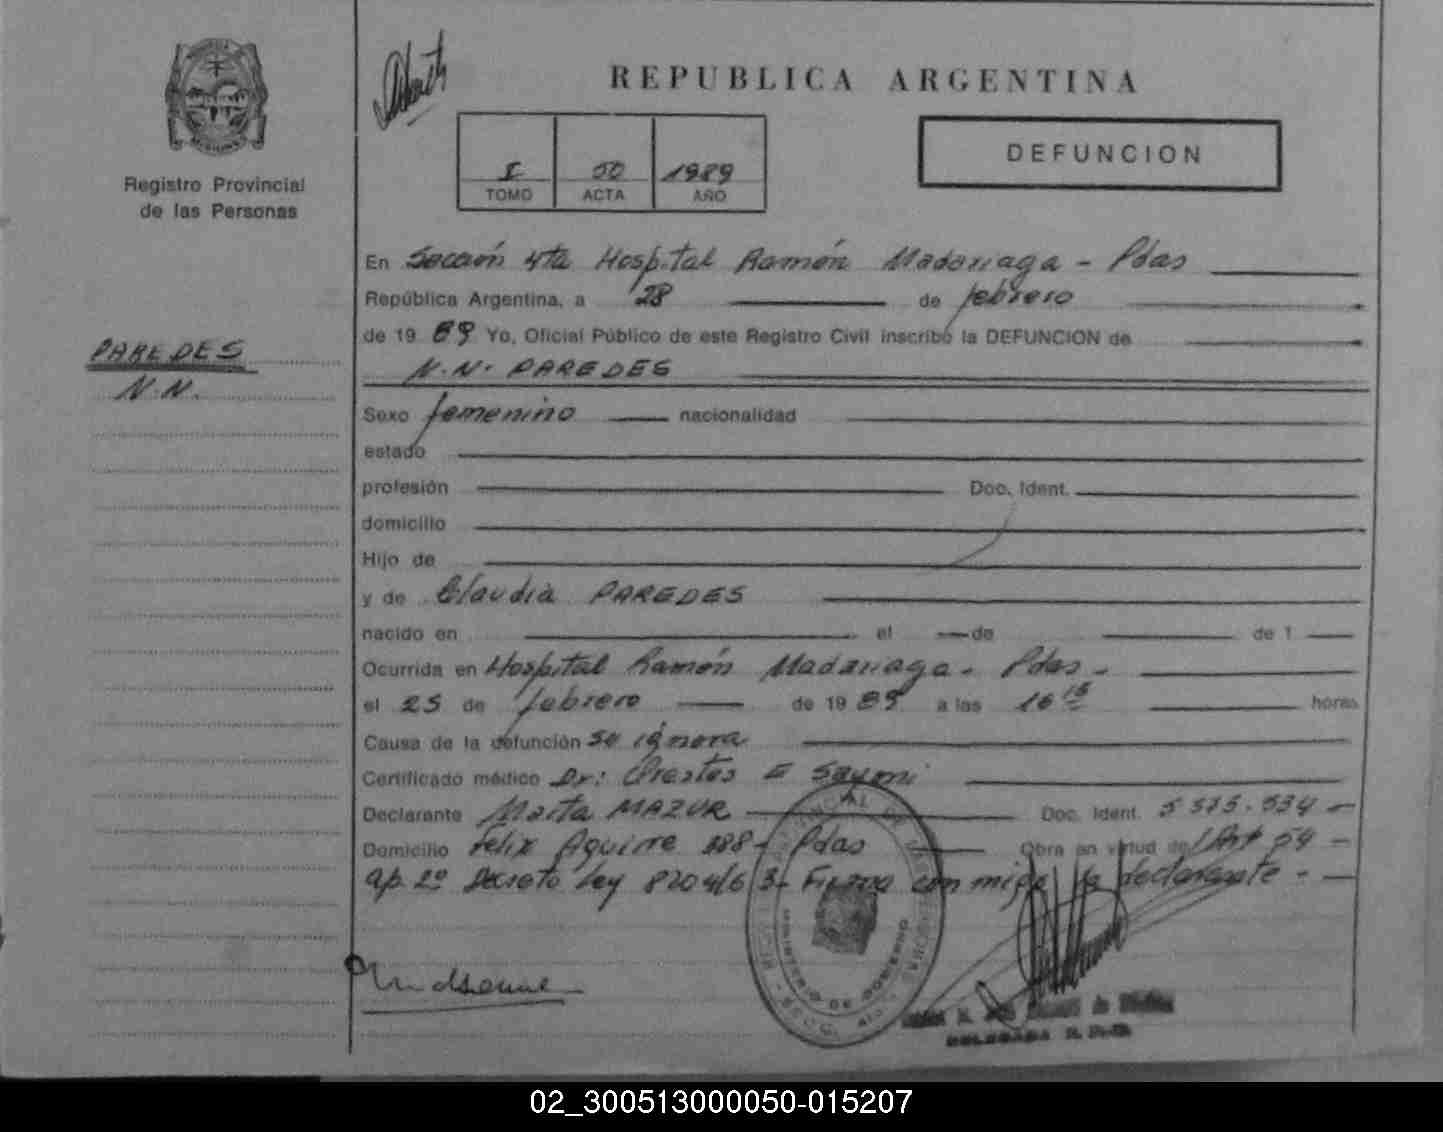 Registro Provincial
de las Personas
PAREDES
N.N.
REPUBLICA ARGENTINA
I 50 1989
TOMO ACTA AÑO
DEFUNCION
En Sección 4ta Hospital Ramón Madariaga - Pdas
República Argentina, a 28 de febrero
de 19 89 Yo, Oficial Público de este Registro Civil inscribo la DEFUNCION de
N.N. PAREDES
Sexo femenino nacionalidad
estado
profesión Doc. Ident.
domicilio
Hijo de
y de Claudia PAREDES
nacido en el de de 1
Ocurrida en Hospital Ramón Madariaga - Pdas -
el 25 de febrero de 1989 a las 16 15 horas
Causa de la defunción se ignora
Certificado médico Dr: Orestes E
Declarante Marta MAZUR Doc. Ident. 5 575.534 -
Domicilio Felix Aguirre - Pdas Obra en virtud de Art 54 -
ap. 2º Decreto Ley 8204/63 - Firma conmigo la declarante - 
MINISTERIO DE GOBIERNO
DELEGADA R.P.P.
02_300513000050-015207